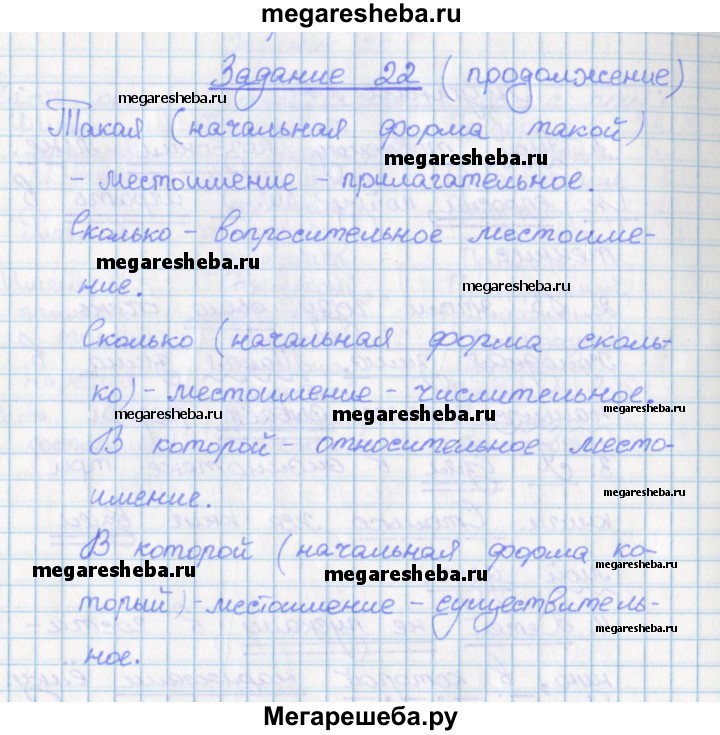 megaresheba.ru
Задание 22 (продолжение)
megaresheba.ru
Такая (начальная форма такой)
megaresheba.ru
- местоимение - прилагательное.
Сколько - вопросительное местоиме-
megaresheba.ru
megaresheba.ru
ние.
Сколько (начальная форма сколь-
ко) - местоимение - числительное.
megaresheba.ru
megaresheba.ru
megaresheba.ru
В которой - относительное место-
имение.
В которой (начальная форма ко-
megaresheba.ru
megaresheba.ru
megaresheba.ru
торый) - местоимение - существитель-
megaresheba.ru
ное.
Мегарешеба.ру